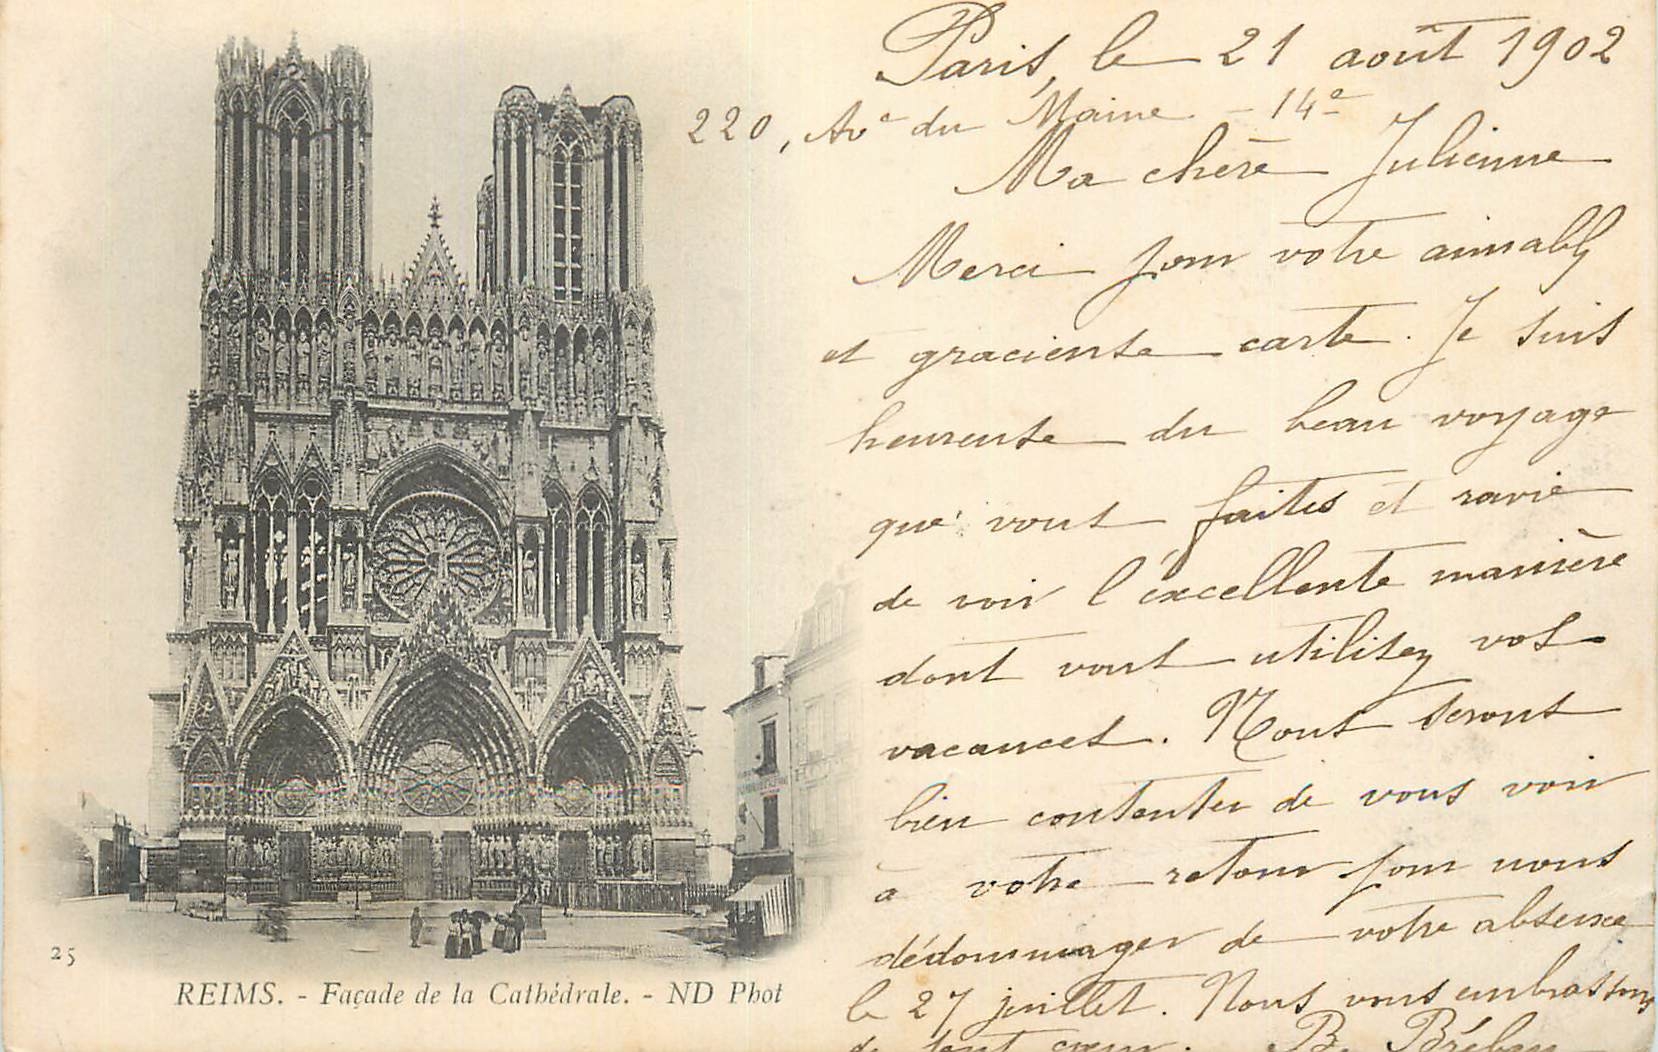 Paris, le 21 août 1902
220, Ave du Maine - 14e
Ma chère Julienne
Merci pour votre aimable
et gracieuse carte. Je suis
heureuse du beau voyage
que vous faites et ravie
de voir l'excellente manière
dont vous utilisez vos
vacances. Nous serons
bien contentes de vous voir
à votre retour pour nous
dédommager de votre absence
le 27 juillet. Nous vous embrassons
de tout cœur. B.
25
REIMS. - Façade de la Cathédrale. - ND Phot